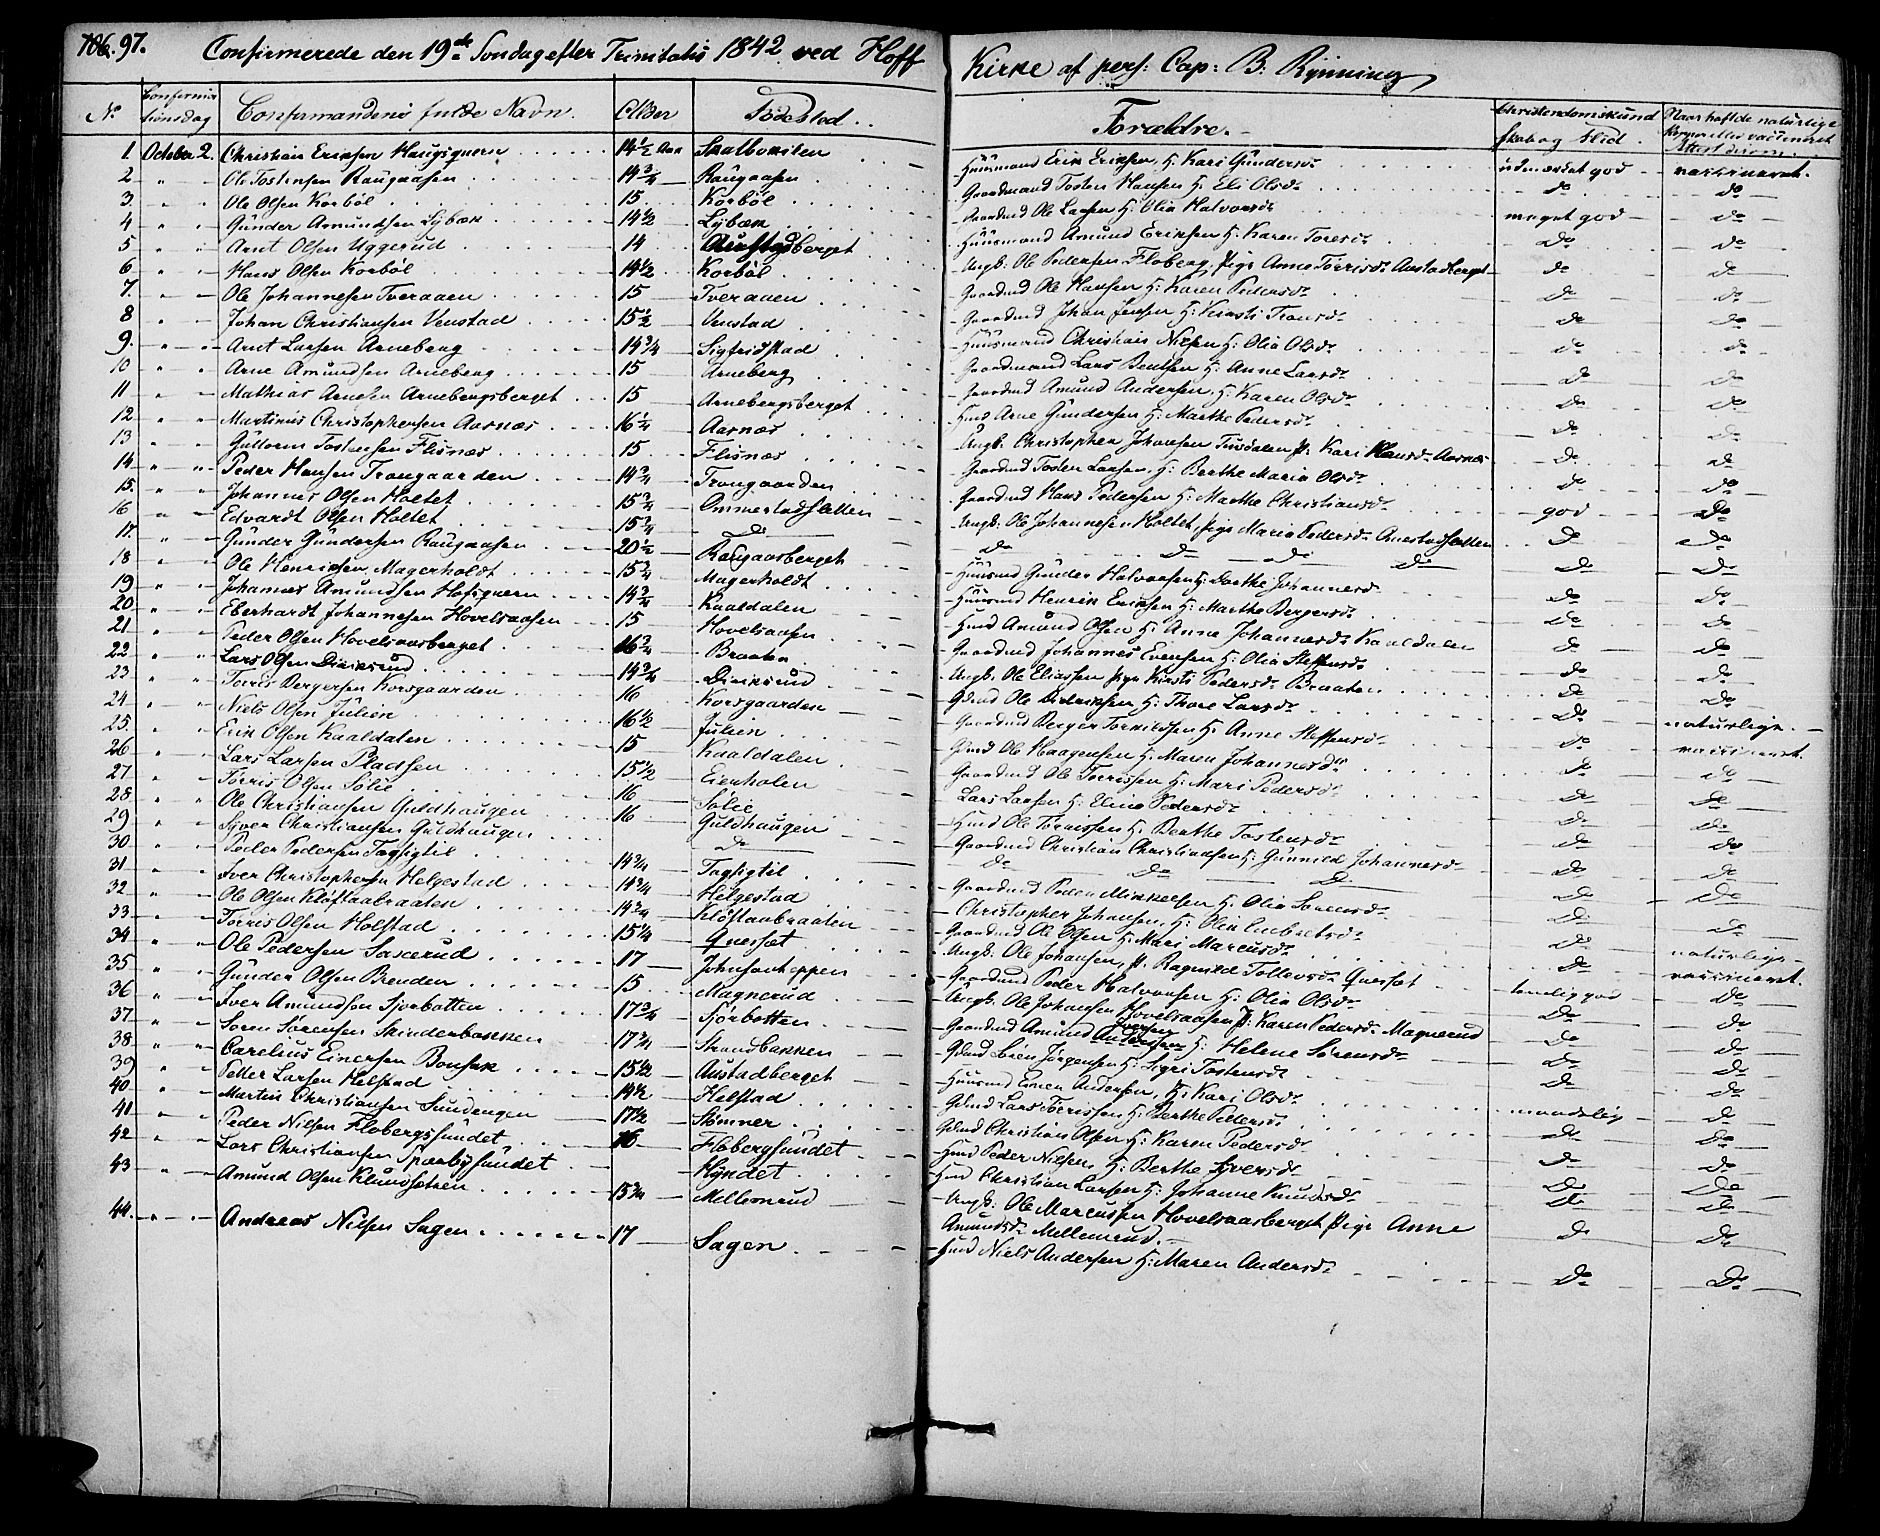 106. 97. Confirmerede den 19de Søndag efter Trinitatis 1842 ved Hoff Kirke af pers: Cap: B. Rynning
No Confirmationsdag Confirmandens fulde Navn. Alder Födested. Forældre. Christendomskundskab og Flid. Naar havt de naturlige Kopper eller vaccineret Attest derom.
1 October 2. Christian Eriksen Haugsqvern 14½ Aar Skalbukilen Huusmand Erik Eriksen, H. Kari Gundersdr udmærket god vaccineret.
2 " Ole Tostensen Raugaasen 14¾ Raugaasen Gaardmand Tosten Hansen H. Eli Olsdr do do
3 " Ole Olsen Korböl 15 Korböl Gaardmd Ole Larsen H: Olia Halvorsdr meget god do
4 " Gunder Amundsen Lybæk 14½ Lybæk Huusmand Amund Eriksen H. Karen Toresdr do do
5 " Arnt Olsen Uggerud 14 Austadberget Ungk: Ole Pedersen Floberg, Pige Anne Torrisdr Austadberget do do
6 " Hans Olsen Korböl 14½ Korböl Gaardmd Ole Hansen H: Karen Pedersdr do do
7. " Ole Johannesen Tveraaen 15 Tveraaen Gaardmd Johan Jensen H: Kirsti Tronsdr do do
8 " Johan Christiansen Venstad 15½ Venstad Huusmand Christian Nilsen H: Olia Olsdr do do
9. " Arnt Larsen Arneberg 14¾ Sigfridstad Gaardmand Lars Bentsen H: Anne Larsdr do do
10 " Arne Amundsen Arneberg 15 Arneberg Gaardmd Amund Andersen, H: Karen Olsdr do do
11 " Mathias Arnesen Arnebergsberget 15 Arnebergsberget Hmd Arne Gundersen H: Marthe Pedersdr do do
12. " Martinus Christophersen Aasnæs 16¼ Aasnæs Ungk: Christopher Johansen P: Kari Hansdr Aasnæs do do
13 " Guttorm Tostensen Flisnæs 15 Flisnæs Gaardmd Tosten Larsen, H: Berthe Maria Olsdr do do
14. " Peder Hansen Trongaarden 14¾ Trongaarden Gaardmd Hans Pedersen H: Marthe Christiansdr do do
15. " Johannes Olsen Holtet 15¾ Ommestadsletten Ungk: Ole Johannesen Holtet, Pige Maria Pedersdr god do
16 " Edvardt Olsen Holtet 15¾ do do do do do do do
17. " Gunder Gundersen Raugaasen 20½ Raugaasberget Huusmd Gunder Halvorsen H: Dorthe Johannesdr do do
18 " Ole Henriksen Magerholdt 15¾ Magerholdt Huusmd Henrik Eriksen H: Marthe Bergersdr do do
19 " Johannes Amundsen Hofsqvern 14¾ Kaaldalen Hmd Amund Olsen H: Anne Johannesdr Kaaldalen do do
20 " Eberhardt Johannesen Hovelsaasen 15 Hovelsaasen Gaardmd Johannes Evensen H: Olia Steffensdr do do
21 " Peder Olsen Hovelsaasberget 16¾ Braaten Ungk: Ole Eliassen Pige Kirsti Pedersdr Braaten do do
22 " Lars Olsen Diriksrud 14¾ Diriksrud Gdmd Ole Dideriksen H: Thore Larsdr do do
23 " Torris Bergersen Korsgaarden 16 Korsgaarden Gaardmd Berger Tormodsen H: Anne Steffensdr do naturlige
24 " Niels Olsen Julien 16½ Julien Gdmd Ole Haagensen H: Maren Johannesdr do vaccineret.
25. " Erik Olsen Kaaldalen 15 Kaaldalen Gaardmd Ole Torrissen H: Mari Pedersdr do do
26 " Lars Larsen Pladsen 15½ Eierholen Lars Larsen H: Eline Pedersdr do do
27 " Torris Olsen Sölie 16 Sölie Hmd Ole Torrissen H: Berthe Tostensdr do do
28 " Ole Christiansen Guldhaugen 16 Guldhaugen Gaardmd Christian Christiansen H: Gunnild Johannesdr do do
29 " Syver Christiansen Guldhaugen do do do do do do
30 " Peder Pedersen Tagligtil 14¾ Tagligtil Gaardmd Peder Mikkelsen H: Olia Sørensdr do do
31 " Iver Christophersen Helgestad 14¾ Helgestad Christopher Johansen, H: Olia Embretsdr do do
32 " Ole Olsen Kløftaabraaten 14¾ Kløftaabraaten Gaardmd Ole Olsen H: Mari Marcusdr do naturlige
33 " Torris Olsen Holstad 15¼ Quesset Ungk: Ole Johansen, P: Ragnild Tollevsdr Quesset do vaccineret.
34 " Ole Pedersen Saxerud 17 Gaardmd Peder Halvorsen H: Olia Olsdr temelig god do
35 " Gunder Olsen Benden 15 Magnerud Ungk: Ole Johansen Hovelsaasen P: Karen Pedersdr Magnerud do do
36 " Iver Amundsen Sjorbotten 17¾ Sjörbotten Gaardmd Amund Iversen H: Helene Sörensdr do do
37 " Soren Sörensen Skinderbakken 17¾ Strandbakken Gdmd Jørgensen H: Sigri Tostensdr do do
38 " Carelius Einersen Bonsak 15½ Austadberget Huusmd Einer Andersen, H: Kari Olsdr do do
39 " Petter Larsen Helstad 14½ Helstad Gdmd Lars Torrissen H: Berthe Pedersdr maadelig do
40 " Martin Christiansen Sundengen 17½ Stömner Gdmd Christian Olsen H: Karen Pedersdr do do
41 " Peder Nilsen Flobergssundet 16 Flobergsundet Hmd Peder Nilsen H: Berthe Syversdr do do
42 " Lars Christiansen Sparbysundet Hyndet Hmd Christian Larsen H: Johanne Knudsdr do do
43 " Amund Olsen Klundsætren 15¾ Mellemrud Ungk: Ole Marcussen Hovelsaasberget Pige Anne do do
Amundsdr Mellemrud. do do
44. " Andreas Nilsen Sagen 17 Sagen Hmd Niels Andersen H: Maren Andersdr do do